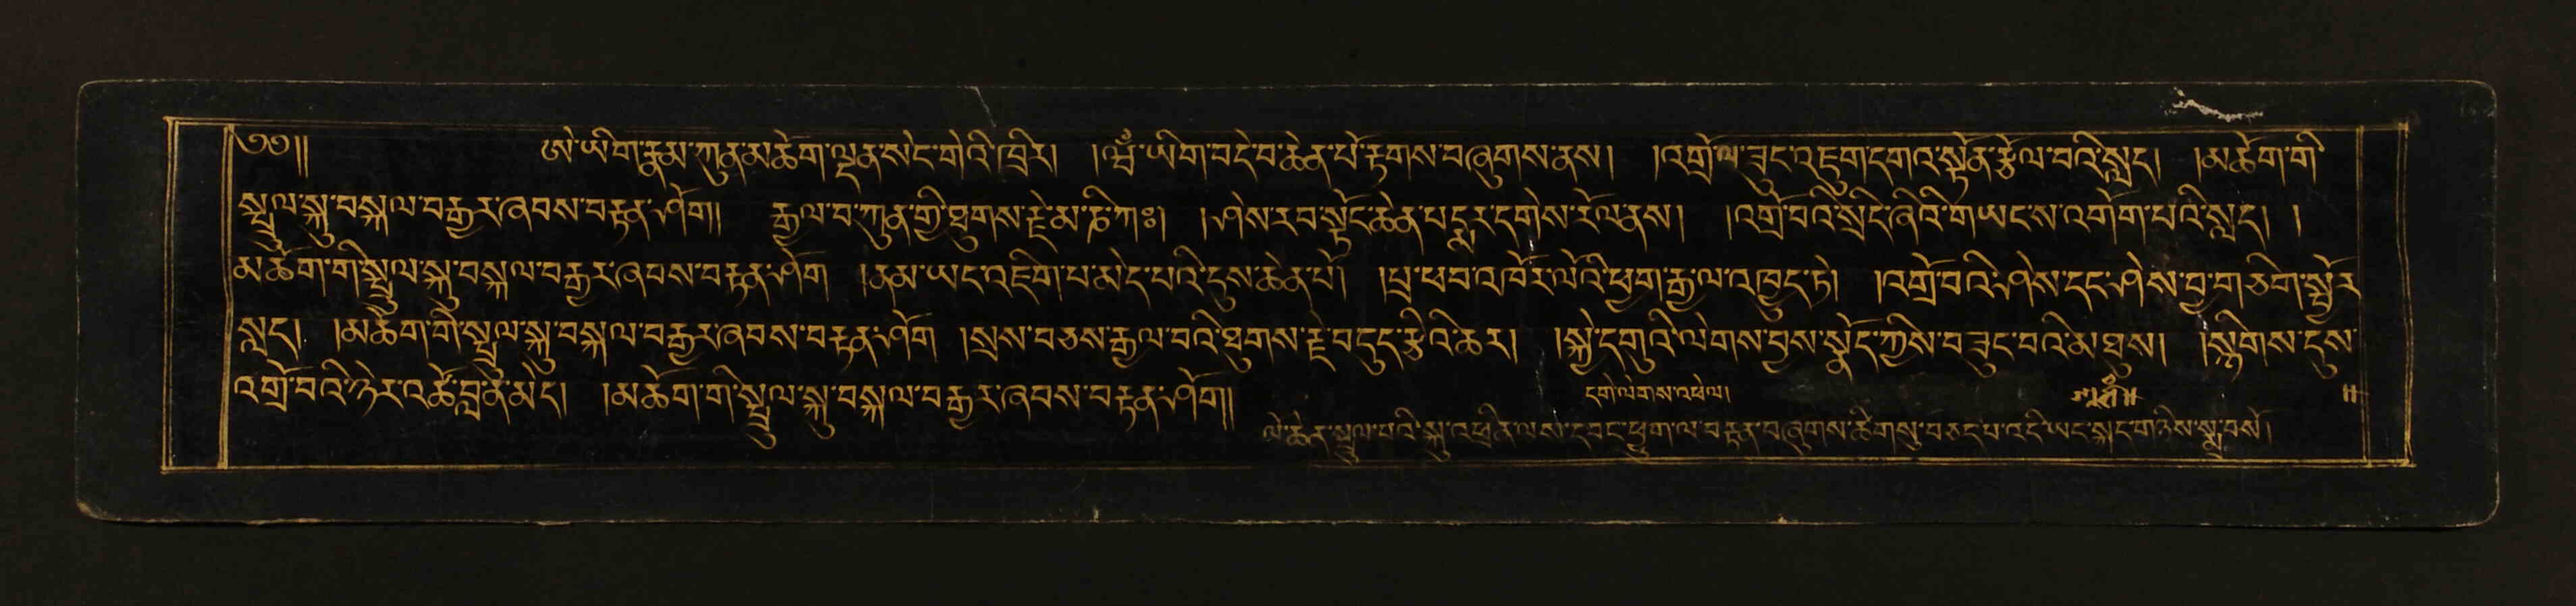 ༄༅།། ཨེ་ཡིག་རྣམ་ཀུན་མཆོག་ལྡན་སེང་གེའི་ཁྲིར། །ཝཾ་ཡིག་བདེ་བ་ཆེན་པོ་རྟགས་བཞུགས་ནས། །འགྲོ་ལ་ཟུང་འཇུག་དགའ་སྟོན་རྩོལ་བའི་སླད། །མཆོག་གི་
སྤྲུལ་སྐུ་བསྐལ་བརྒྱར་ཞབས་བརྟན་ཤོག། རྒྱལ་བ་ཀུན་གྱི་ཐུགས་རྗེ་མ་ཎི་ཀཿ། །ཤེས་རབ་སྟོང་ཆེན་པདྨར་དགྱེས་རོལ་ནས། །འགྲོ་བའི་སྲིད་ཞིའི་གཡང་ས་འགོག་པའི་སླད། །
མཆོག་གི་སྤྲུལ་སྐུ་བསྐལ་བརྒྱར་ཞབས་བརྟན་ཤོག །ནམ་ཡང་འཇིག་པ་མེད་པའི་དུས་ཆེན་པོ། །ཕྲ་ཕབ་འཁོར་ལོའི་ཕྱག་རྒྱ་ལ་འཁྱུད་ཏེ། །འགྲོ་བའི་ཤེས་དང་ཤེས་བྱ་གཅིག་སྦྱོར་
སླད། །མཆོག་གི་སྤྲུལ་སྐུ་བསྐལ་བརྒྱར་ཞབས་བརྟན་ཤོག །སྲས་བཅས་རྒྱལ་བའི་ཐུགས་རྗེ་བདུད་རྩིའི་ཆར། །སྐྱེ་དགུའི་ལེགས་བྱས་སྣོད་ཀྱིས་བཟུང་བའི་མཐུས། །སྙིགས་དུས་
འགྲོ་བའི་ཉེར་འཚོ་བླ་ན་མེད། །མཆོག་གི་སྤྲུལ་སྐུ་བསྐལ་བརྒྱར་ཞབས་བརྟན་ཤོག།
དགེ་ལེགས་འཕེལ།
ལོ་ཆེན་སྤྲུལ་པའི་སྐུ་འཕྲིན་ལས་དབང་ཕྱུག་ལ་བརྟན་བཞུགས་ཚིགས་བཅད་པ་འདི་ཡང་སྐད་གཉིས་སྨྲ་བས།